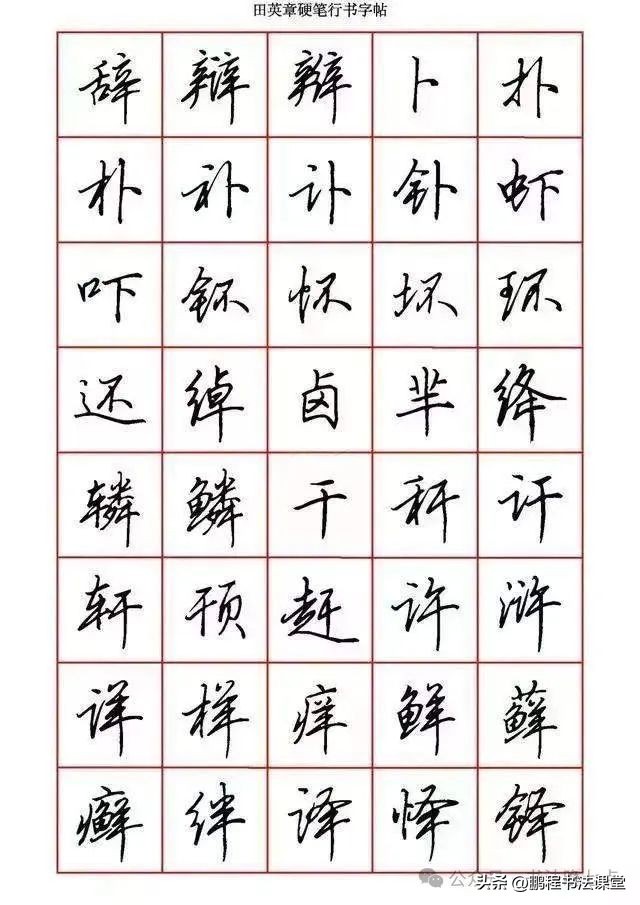 田英章硬笔行书字帖
辞 辩 辫 卜 扑
朴 补 讣 钋 虾
吓 钚 怀 坏 环
还 绰 卤 芈 绛
辚 鳞 干 秆 讦
轩 顸 赶 许 浒
详 样 痒 鲜 藓
癣 绊 译 怿 铎
头条 @鹏程书法课堂